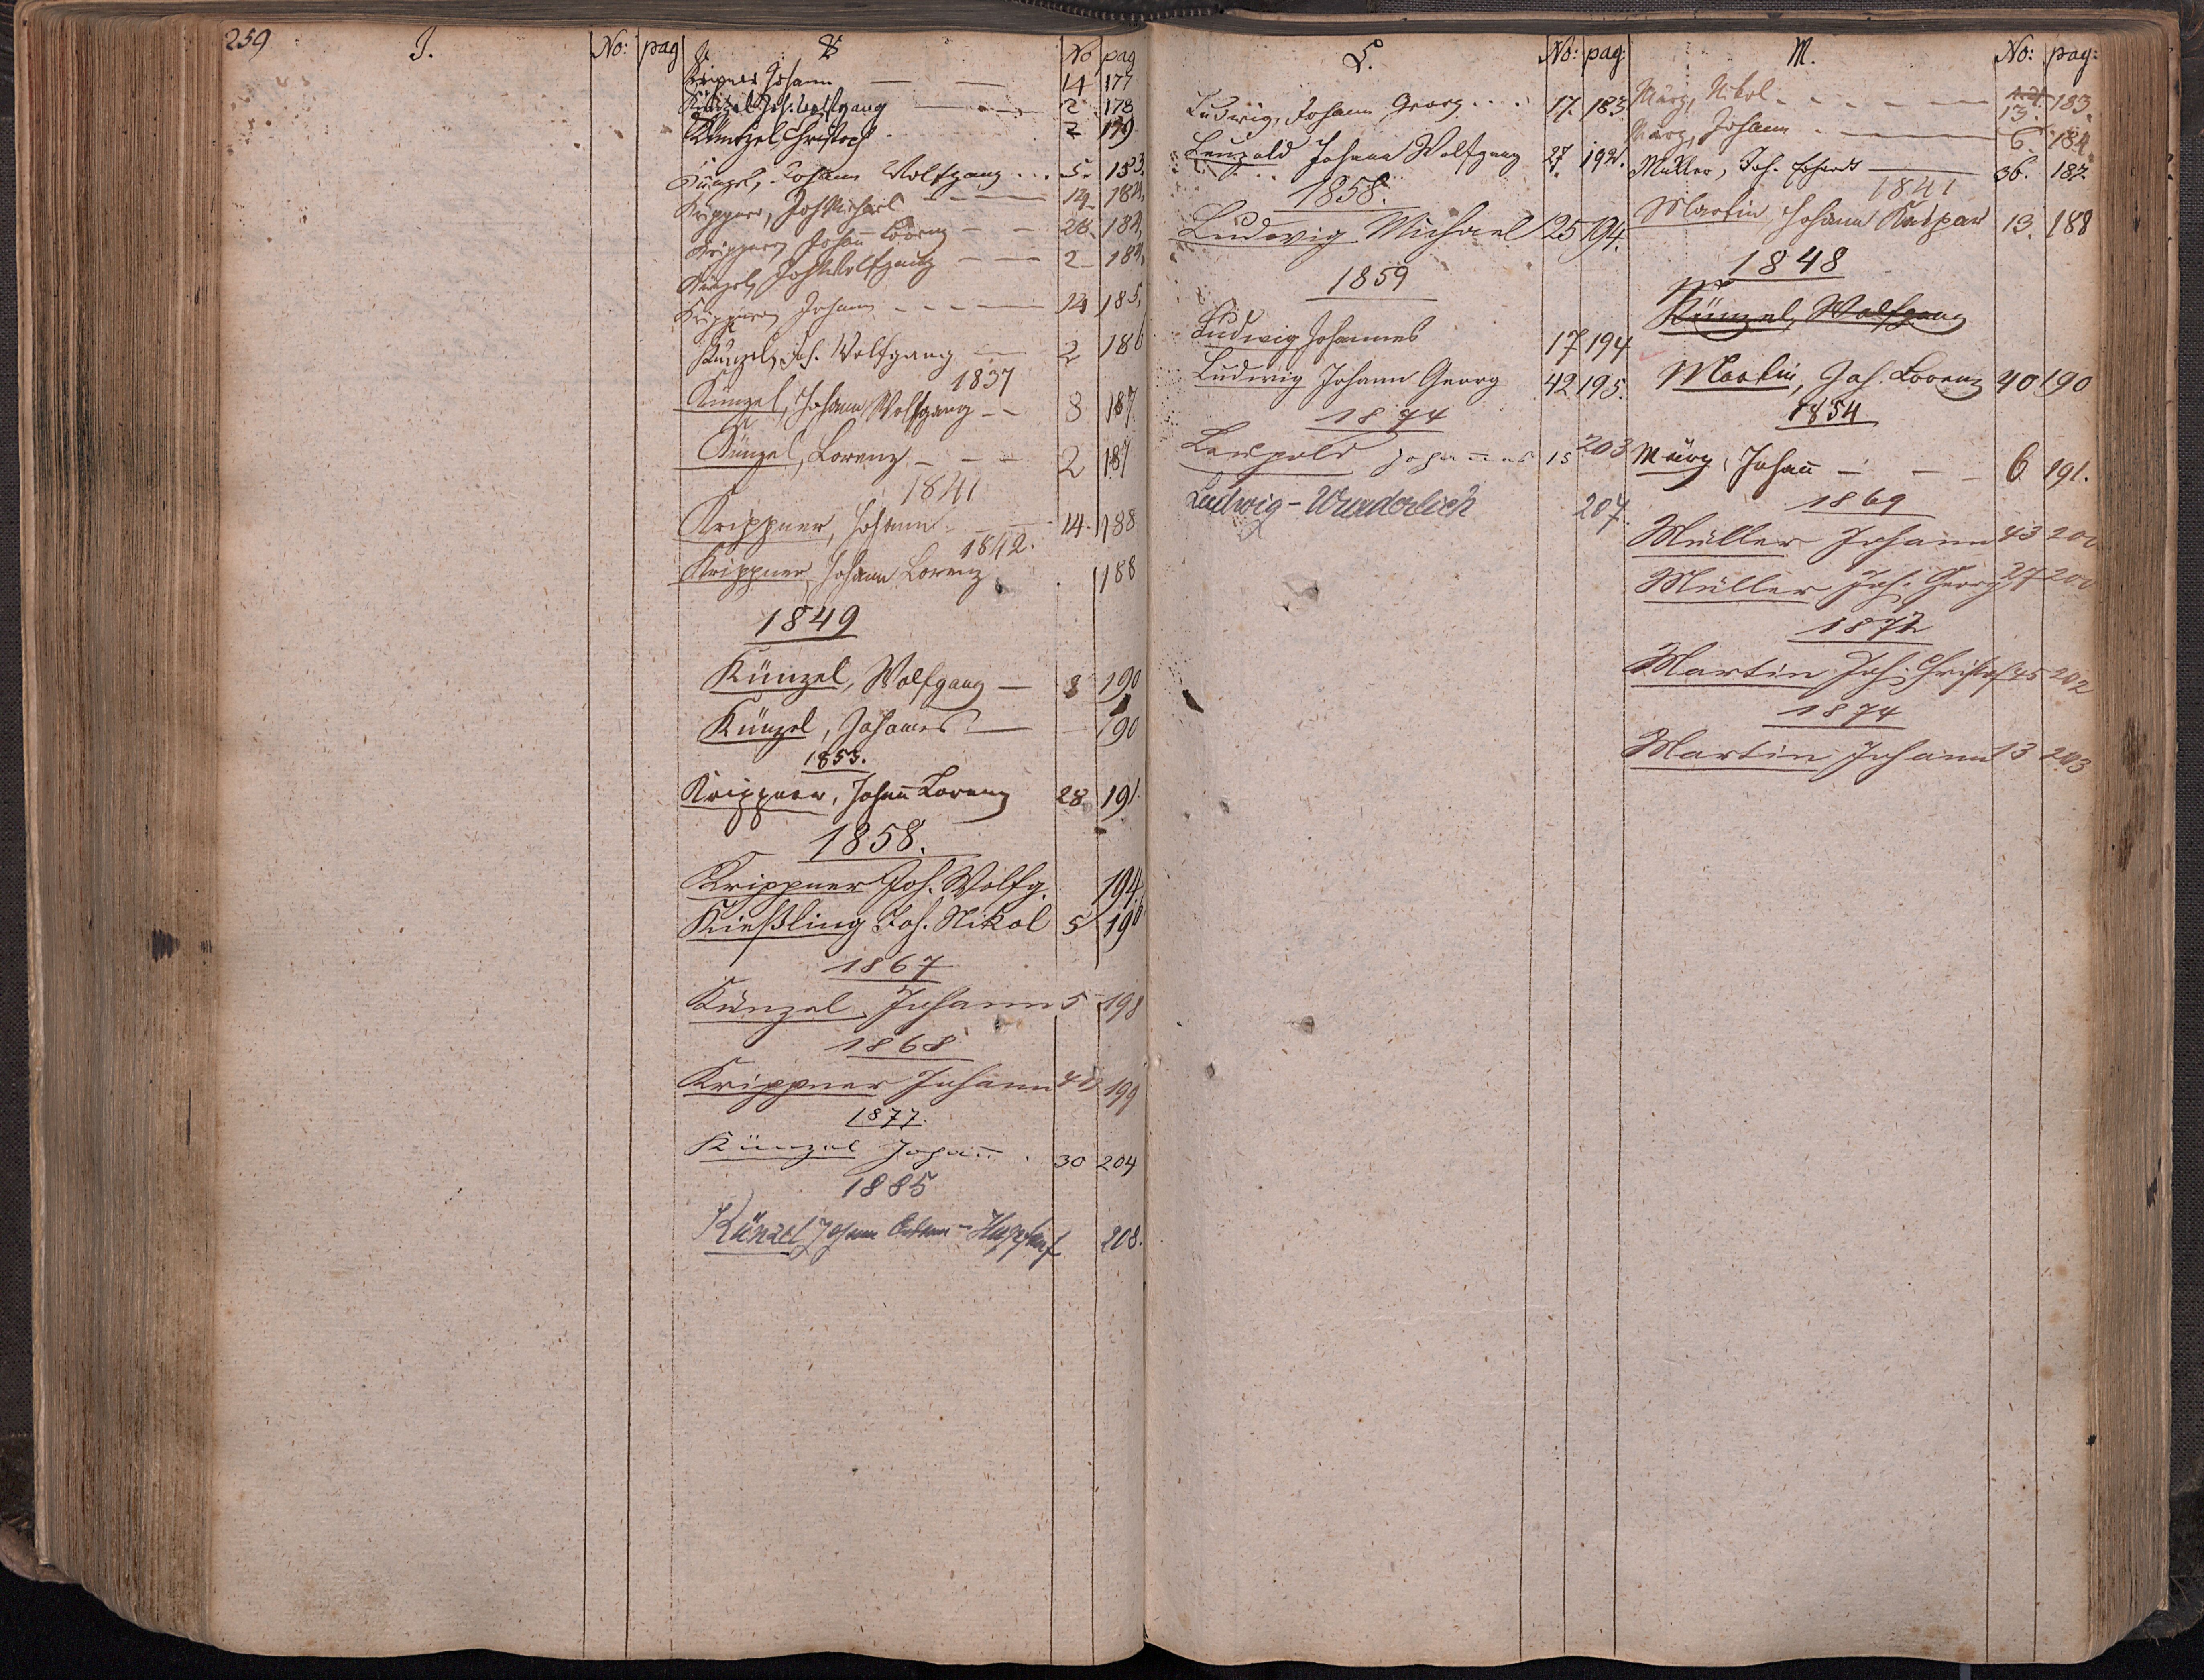 259
J. No: pag
K No pag
Kripner Johann — — 14 177
Künzel Joh. Wolfgang — 2 178
Künzel Christoph 2 179
Künzel, Johann Wolfgang ... 5. 183.
Krippner, Joh Michael - - - 14. 184.
Krippner, Johañ Lorenz - - 28. 184.
Künzel, Joh Wolfgang - - 2 184.
Krippner, Johann - - - - 14 185.
Künzel, Joh. Wolfgang — 2 186
1837
Künzel, Johann Wolfgang - - 8 187
Künzel, Lorenz - - - 2 187
1841
Krippner, Johann - - 14. 188
1842.
Krippner, Johann Lorenz . 188
1849
Künzel, Wolfgang — 8 190
Künzel, Johannes — 190
1853.
Krippner, Johañ Lorenz 28 191.
1858.
Krippner Joh. Wolfg. 194.
Kießling Joh. Nikol 5 196
1867
Künzel Johann 5 198
1868
Krippner Johann 199
1877.
Künzel Johañ . 30 204
1885
Künzel Johann 208.
L. No: pag:
Ludwig, Johann Georg ... 17. 183
Leupold Johann Wolfgang 27. 192.
1858.
Ludwig Michael 25 194.
1859
Ludwig Johannes 17 194
Ludwig Johann Georg 42 195.
1874
Leupold Johannes 15 203
Ludwig - Wunderlich 207.
M. No: pag:
März, Nikol - - - - - 13. 183.
März, Johann - - - 6. 184.
Müller, Joh. Erhardt — 36. 187.
1841
Martin Johann Kaspar 13. 188
1848
Künzel, Wolfgang
Martin, Joh. Lorenz 40 190
1854
März, Johañ - - - 6 191.
1869
Müller Johann 43 200
Müller Joh. Georg 27 200
1872
Martin Joh. Christof 45 202
1874
Martin Johann 13 203